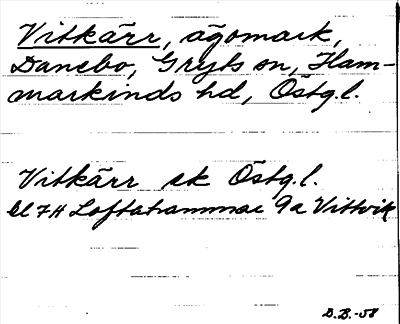 Vitkärr, ägomark,
Danebo, Gryts sn, Ham-
markinds hd, Östg.l.
Vitkärr ek Östg.l.
bl 7H Loftahammar 9a Vittvik
D.B.-58